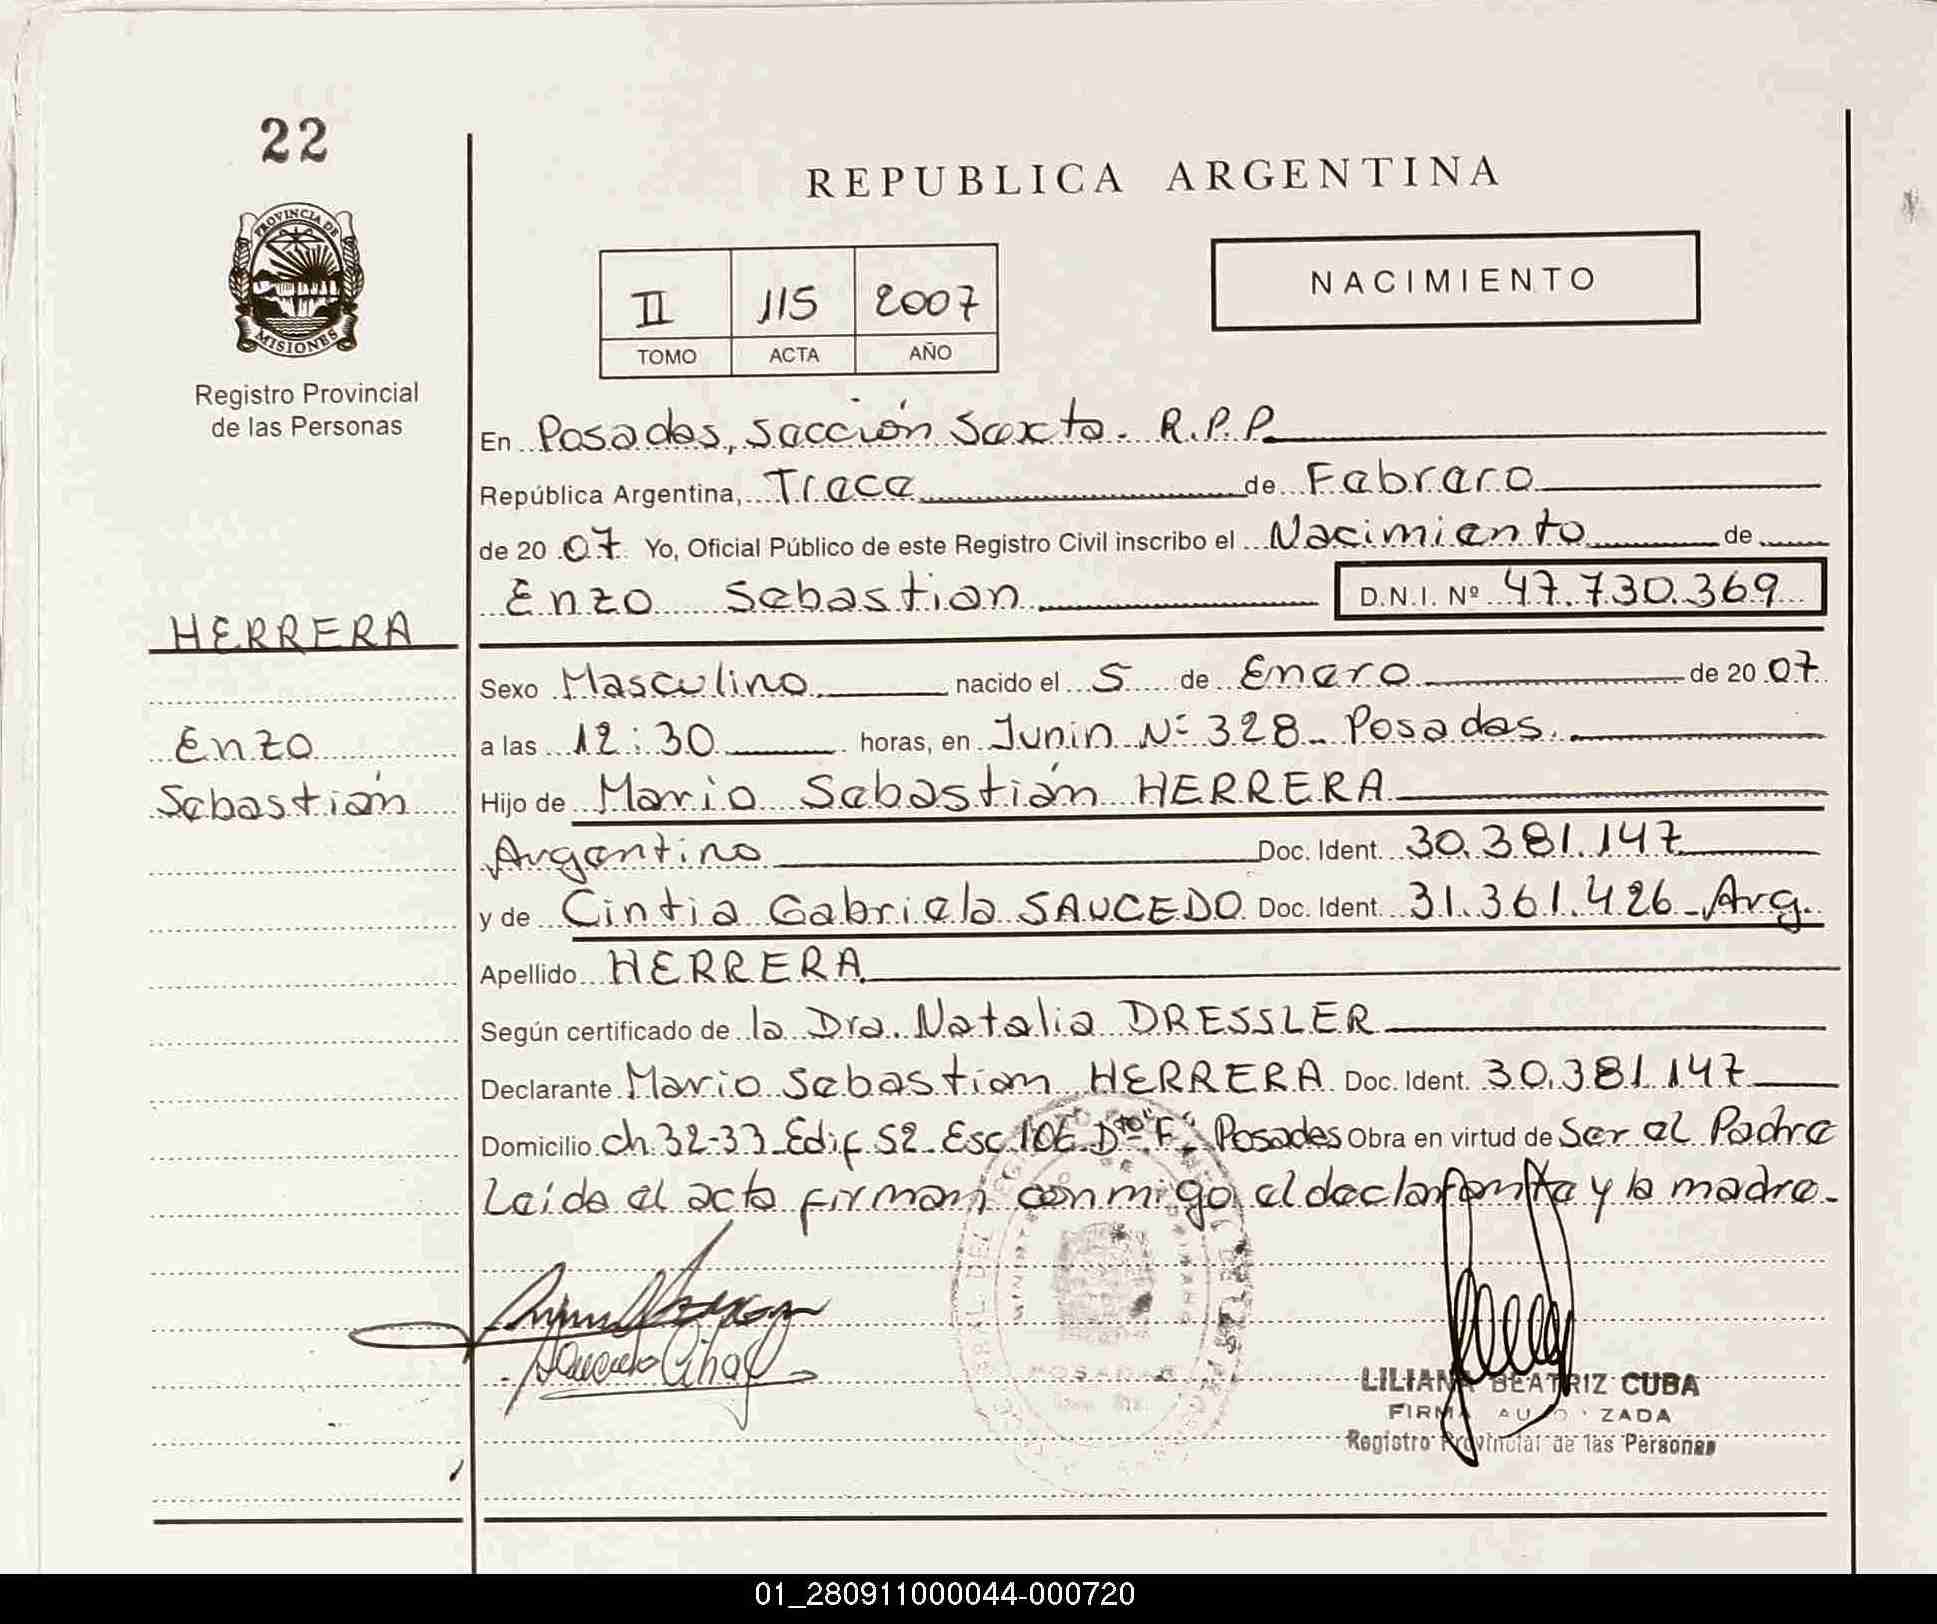 22
PROVINCIA DE
MISIONES
Registro Provincial
de las Personas
REPUBLICA ARGENTINA
NACIMIENTO
II 115 2007
TOMO ACTA AÑO
En Posadas, sección Sexta. R.P.P.
República Argentina, Trece de Febrero
de 20 07 Yo, Oficial Público de este Registro Civil inscribo el Nacimiento de
Enzo Sebastian D.N.I. Nº 47.730.369
HERRERA
Enzo
Sebastián
Sexo Masculino nacido el 5 de Enero de 20 07
a las 12:30 horas, en Junin Nº 328 Posadas.
Hijo de Mario Sebastián HERRERA
Argentino Doc. Ident. 30.381.147
y de Cintia Gabriela SAUCEDO Doc. Ident. 31.361.426 - Arg.
Apellido HERRERA
Según certificado de la Dra. Natalia DRESSLER
Declarante Mario Sebastian HERRERA Doc. Ident. 30.381.147
Domicilio ch. 32-33 Edif. 52 Esc. 106 Dto "F" Posadas Obra en virtud de Ser el Padre
Leída el acta firman conmigo el declarante y la madre.
POSADAS
LILIANA BEATRIZ CUBA
FIRMA AUTORIZADA
Registro Provincial de las Personas
01_280911000044-000720